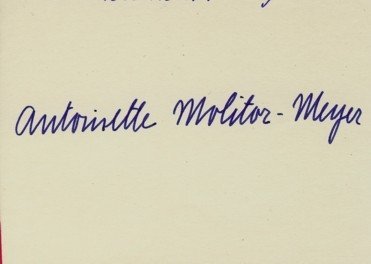 Antoinette Molitor-Meyer